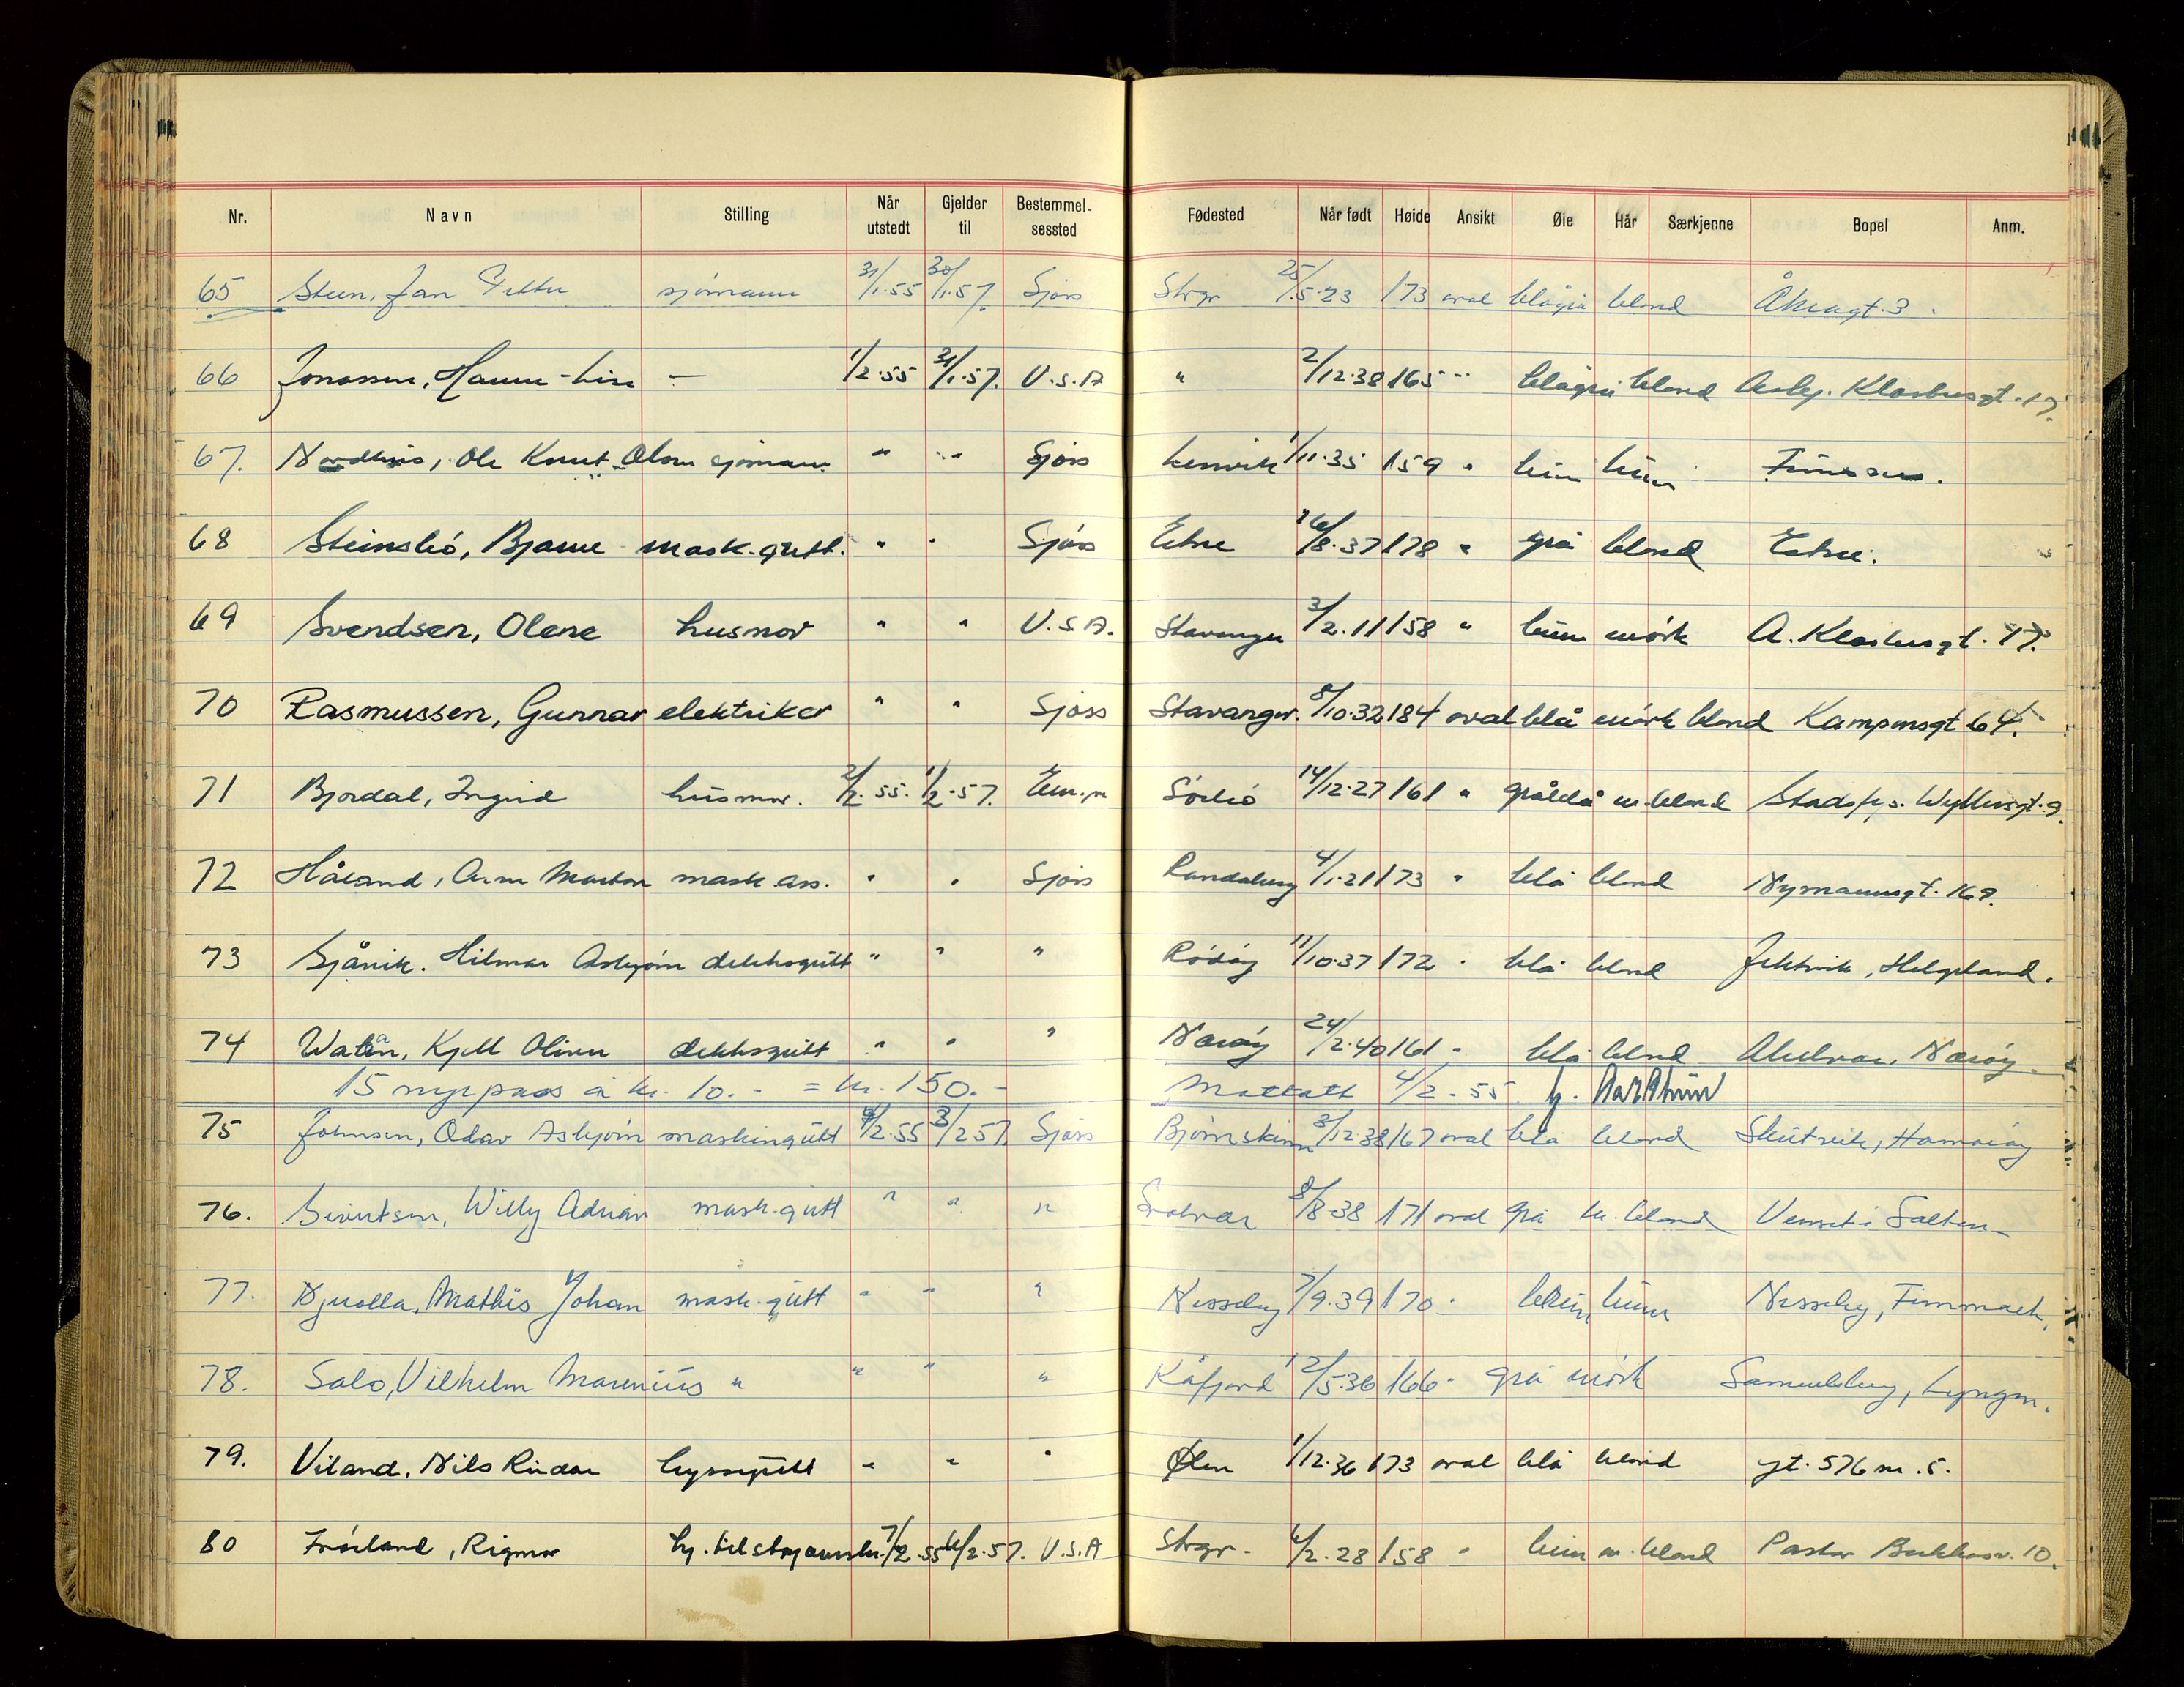 Nr. Navn Stilling Når utstedt Gjelder til Bestemmelsessted Fødested Når født Høide Ansikt Øie Hår Særkjenne Bopel Anm.
65 Steen, Jan Petter sjömann 31/1.55 30/1.57. Sjøss Stvgr 25/5.23 173 oval blågrå blond Åkragt. 3.
66 Jonassen, Hanne-Lise — 1/2.55 31/1.57. U.S.A " 2/12.38 165 " blågrå blond Asbj. Klostersgt. 17.
67. Ole Knut Olson sjömann " " Sjøss Lenvik 1/11.35 159 " brun brun Finnsnes.
68 Steinsbö, Bjarne mask.gutt. " " Sjøss Etne 26/8.37 178 " grå blond Etne.
69 Svendsen, Olene husmor " " U.S.A. Stavanger 3/2.11 158 " brun mörk A. Klostersgt. 17.
70 Rasmussen, Gunnar elektriker " " Sjøss Stavanger. 8/10.32 184 oval blå mörk blond Kampensgt 64.
71 Bjordal, Ingrid husmor. 2/2.55. 1/2.57. Eur.p 14/12.27 161 " gråblå m.blond Wyllersgt. 9.
72 Håland, Arne Marton mask.ass. " " Sjøss Randaberg 4/1.21 173 " blå blond Nymannsgt. 169.
73 Sjåvik. Hilmar Asbjörn dekksgutt " " " Rödöy 11/10.37 172 " blå blond Jektvik, Helgeland.
74 Kjell Oliver dekksgutt " " " Næröy 24/2.40 161 " blå blond Næröy.
15 nye pass à kr. 10.- = kr. 150.- Mottatt 4/2-55.
75 Johnsen, Odav Asbjörn maskingutt 4/2.55 3/2 57. Sjøss Björnskinn 3/12.38 167 oval blå blond Skutvik, Hamaröy
76. Sivertsen, Willy Adrian mask.gutt " " " Svolvær 8/8.38 171 oval grå m. blond Venset i Salten
77. Njuolla, Mathis Johan mask.gutt " " " Nesseby 7/9.39 170 " brun brun Nesseby, Finnmark.
78. Salo, Vilhelm Marenius " " " " Kåfjord 12/5.36 166 " grå mörk Samuelsberg, Lyngen.
79. Viland, Nils Reidar byssegutt " " " Ølen 1/12.36 173 oval blå blond gt. 576 nr. 5.
80 Fröiland, Rigmor 7/2.55 6/2.57. U.S.A Stvgr. 6/2.28 158 " brun m.blond Pastor 10.